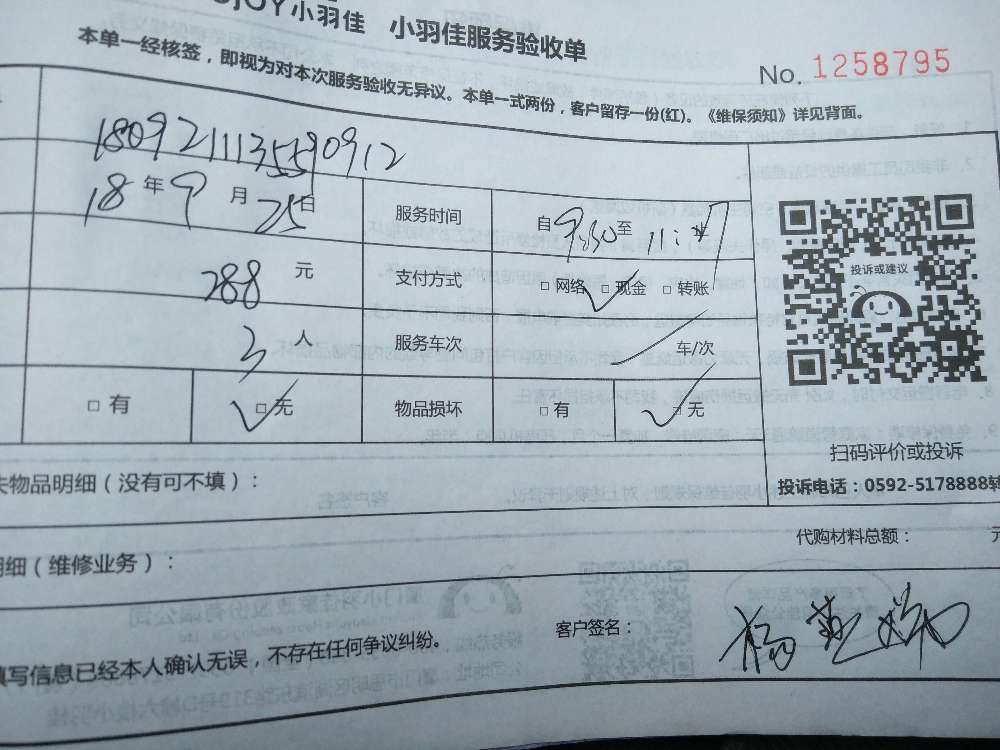 JOY小羽佳 小羽佳服务验收单
本单一经核签，即视为对本次服务验收无异议。本单一式两份，客户留存一份(红)。《维保须知》详见背面。
No. 1258795
1809211135590912
18 年 9 月 25 日 服务时间 自 9:30 至 11:
288 元 支付方式 □ 网络 □ 现金 □ 转账
3 人 服务车次 车/次
□ 有 □ 无 物品损坏 □ 有 □ 无
投诉或建议
扫码评价或投诉
投诉电话：0592-5178888转
失物品明细（没有可不填）：
代购材料总额： 元
明细（维修业务）：
客户签名：
填写信息已经本人确认无误，不存在任何争议纠纷。